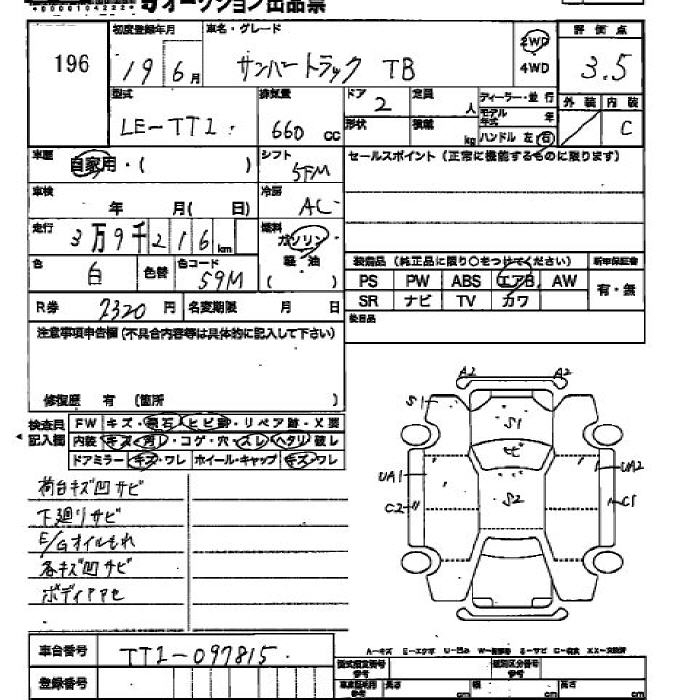 オークション出品票
196
初度登録年月
19 6月
車名・グレード
サンバートラック TB
2WD
4WD
評価点
3.5
型式
LE-TT2
排気量
660 cc
ドア
2
定員
人
形状
積載
kg
ディーラー・並行
モデル年式
年
ハンドル 左・右
外装
内装
C
車歴
自家用・( )
シフト
5FM
セールスポイント (正常に機能するものに限ります)
車検
年 月( 日)
冷房
AC
走行
3万9千216km
燃料
ガソリン
軽油
( )
色
白
色替
色コード
59M
装備品 (純正品に限り○をつけてください)
新車保証書
PS PW ABS エアB AW
有・無
SR ナビ TV カワ
R券
7320 円
名変期限 月 日
後日品
注意事項申告欄 (不具合内容等は具体的に記入して下さい)
修復歴 有 (箇所 )
検査員記入欄
FW キズ・飛石・ヒビ・リペア跡・X要
内装・キズ・汚レ・コゲ・穴・スレ・ヘタリ・破レ
ドアミラー・キズ・ワレ・ホイール・キャップ・キズ・ワレ
荷台キズ凹サビ
下廻りサビ
E/Gオイルもれ
各キズ凹サビ
ボディアアセ
A2 A2
S1
S1
ビ
UA1
UA2
S2
C2
C1
車台番号
TT2-097815
登録番号
型式指定番号
類別区分番号
長さ cm 幅 cm 高さ cm